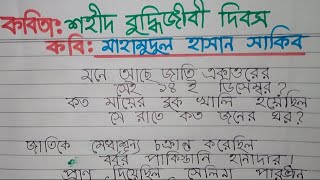 কবিতা: শহীদ বুদ্ধিজীবী দিবস
কবি: মাহামুদুল হাসান সাকিব
মনে আছে জাতি একাত্তরের
সেই ১৪ ই ডিসেম্বর?
কত মায়ের বুক খালি হয়েছিল
সে রাতে কত জনের ঘর?
জাতিকে মেধাশূন্য চক্রান্ত করেছিল
বর্বর পাকিস্তানি হানাদার।
প্রাণ দিয়েছিল সেলিনা পারভীন